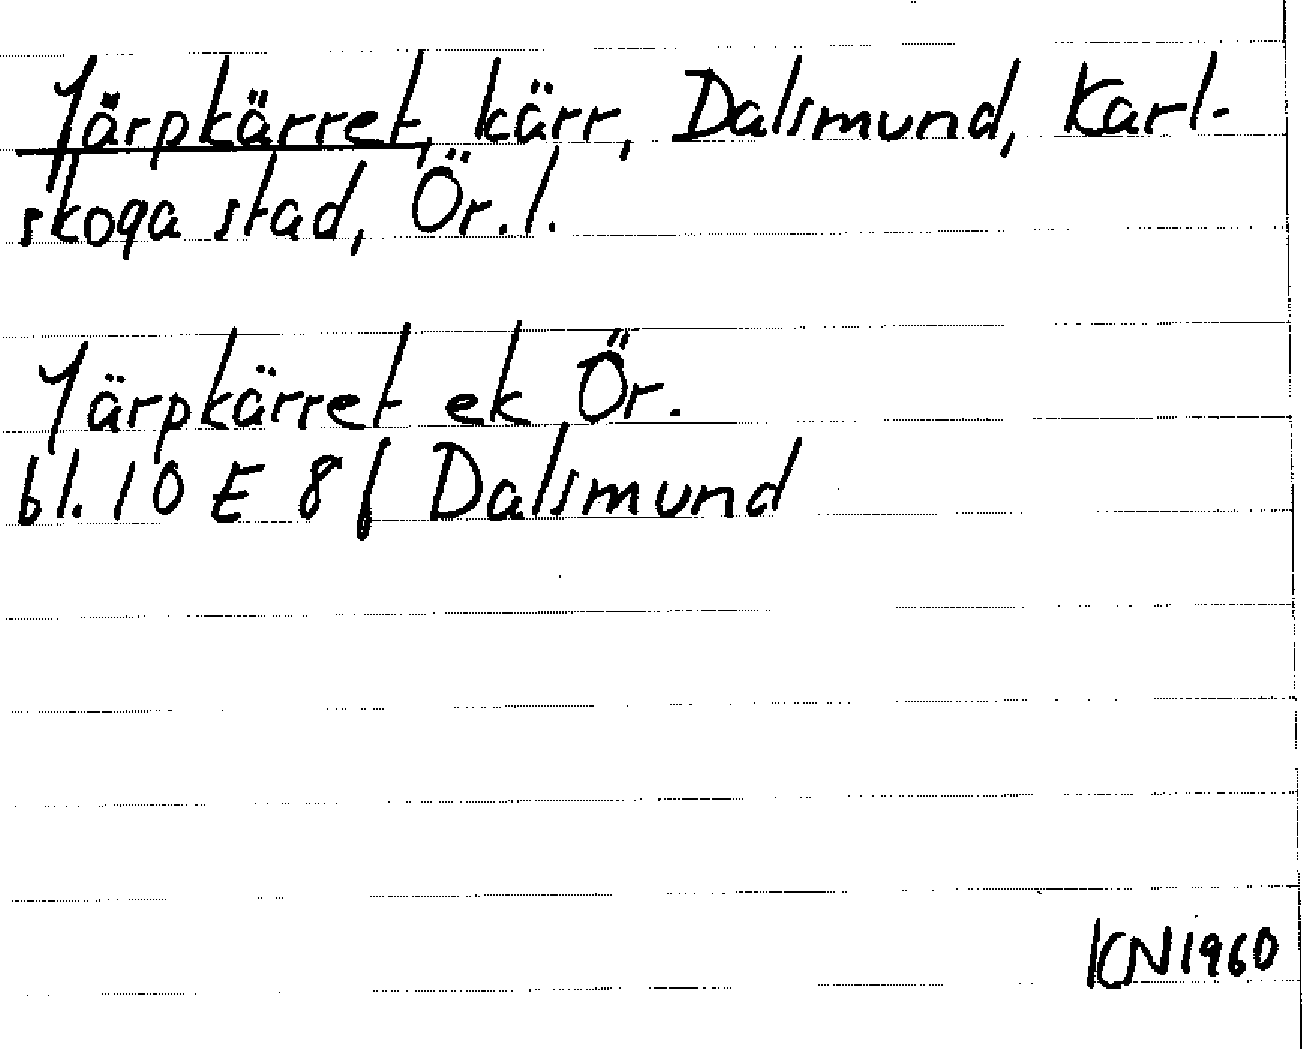 Järpkärret, kärr, Dalsmund, Karl-
skoga stad, Ör. l.
Järpkärret ek Ör.
bl. 10 E 8 f Dalsmund
KN 1960